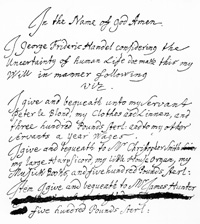 In the Name of God Amen.
I George Frideric Handel considering the
Uncertainty of human Life doe make this my
Will in manner following
viz.
I give and bequeath unto my Servant
Peter le Blond, my Clothes and Linnen, and
three hundred Pounds sterl: and to my other
Servants a year Wages.
I give and bequeath to Mr Christopher Smith
my large Harpsicord, my little House Organ, my
Musick Books, and five hundred Pounds sterl:
Item I give and bequeath to Mr James Hunter
five hundred Pounds sterl: